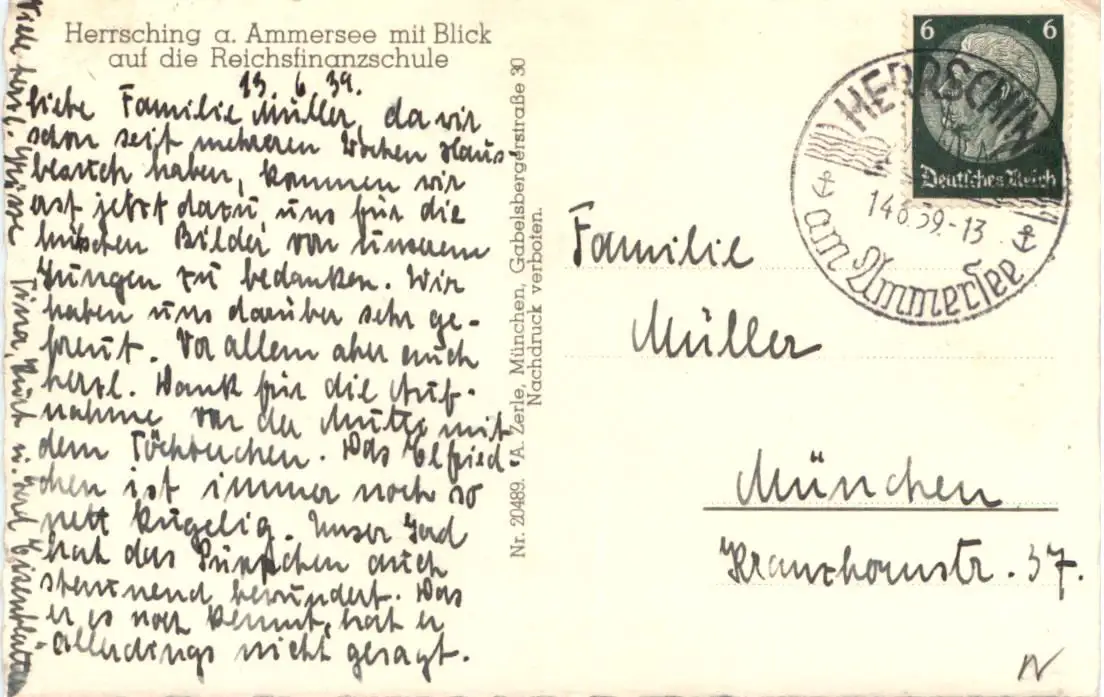 Herrsching a. Ammersee mit Blick
auf die Reichsfinanzschule
13. 6. 39.
Liebe Familie Müller, da wir
schon seit mehreren Wochen Haus-
besuch haben, kommen wir
erst jetzt dazu, uns für die
hübschen Bilder von unserem
Jungen zu bedanken. Wir
haben uns darüber sehr ge-
freut. Vor allem aber auch
herzl. Dank für die Auf-
nahme von der Mutter mit
dem Töchterchen. Das Elfried-
chen ist immer noch so
nett kugelig. Unser Gerd
hat das Püppchen auch
staunend bewundert. Was
er es noch kennt, hat er
allerdings nicht gesagt.
Viele herzl. Grüsse
Kurt u. Gerd
Nr. 20489. A. Zerle, München, Gabelsbergerstraße 30
Nachdruck verboten.
6 6
Deutsches Reich
HERRSCHING
14.6.39.-13
am Ammersee
Familie
Müller
München
37.
N